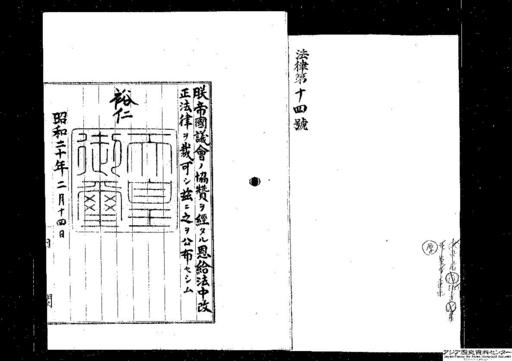 法律第十四號
朕帝國議會ノ協贊ヲ經タル恩給法中改
正法律ヲ裁可シ茲ニ之ヲ公布セシム
裕仁
天皇
御璽
昭和二十年二月十四日
内閣
アジア歴史資料センター